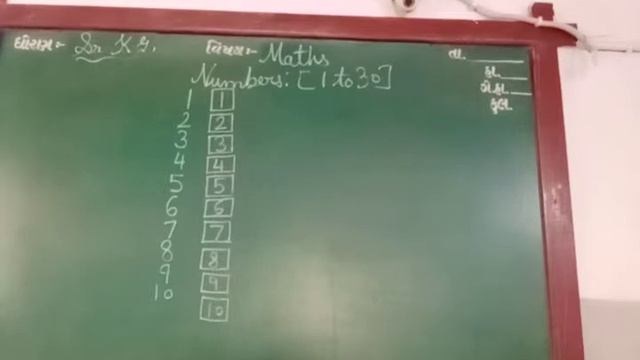 ધોરણ:- Sr K.G.
વિષય:- Maths
તા.
Numbers: [1 to 30]
હા.
ગે.હા.
કુલ
1 1
2 2
3 3
4 4
5 5
6 6
7 7
8 8
9 9
10 10